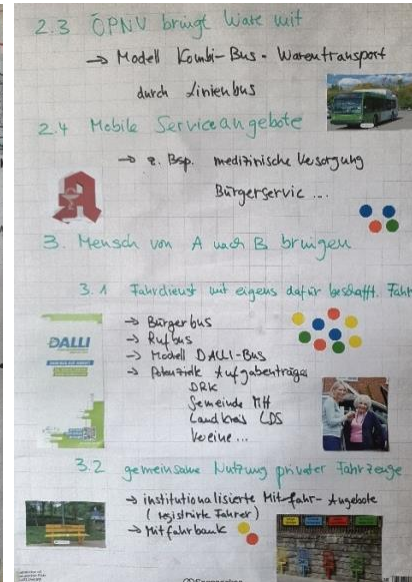 2.3 ÖPNV bringt Ware mit
→ Modell Kombi-Bus - Warentransport
durch Linienbus
2.4 Mobile Serviceangebote
→ z. Bsp. medizinische Versorgung
Bürgerservic ...
A
3. Mensch von A nach B bringen
3.1 Fahrdienst mit eigens dafür beschafft. Fahr
→ Bürgerbus
→ Rufbus
→ Modell DALLI-Bus
→ Potenzielle Aufgabenträger
DRK
Gemeinde MH
Landkreis LDS
Vereine ...
DALLI
3.2 gemeinsame Nutzung privater Fahrzeuge
→ institutionalisierte Mitfahr-Angebote
(registrirte Fahrer)
→ Mitfahrbank